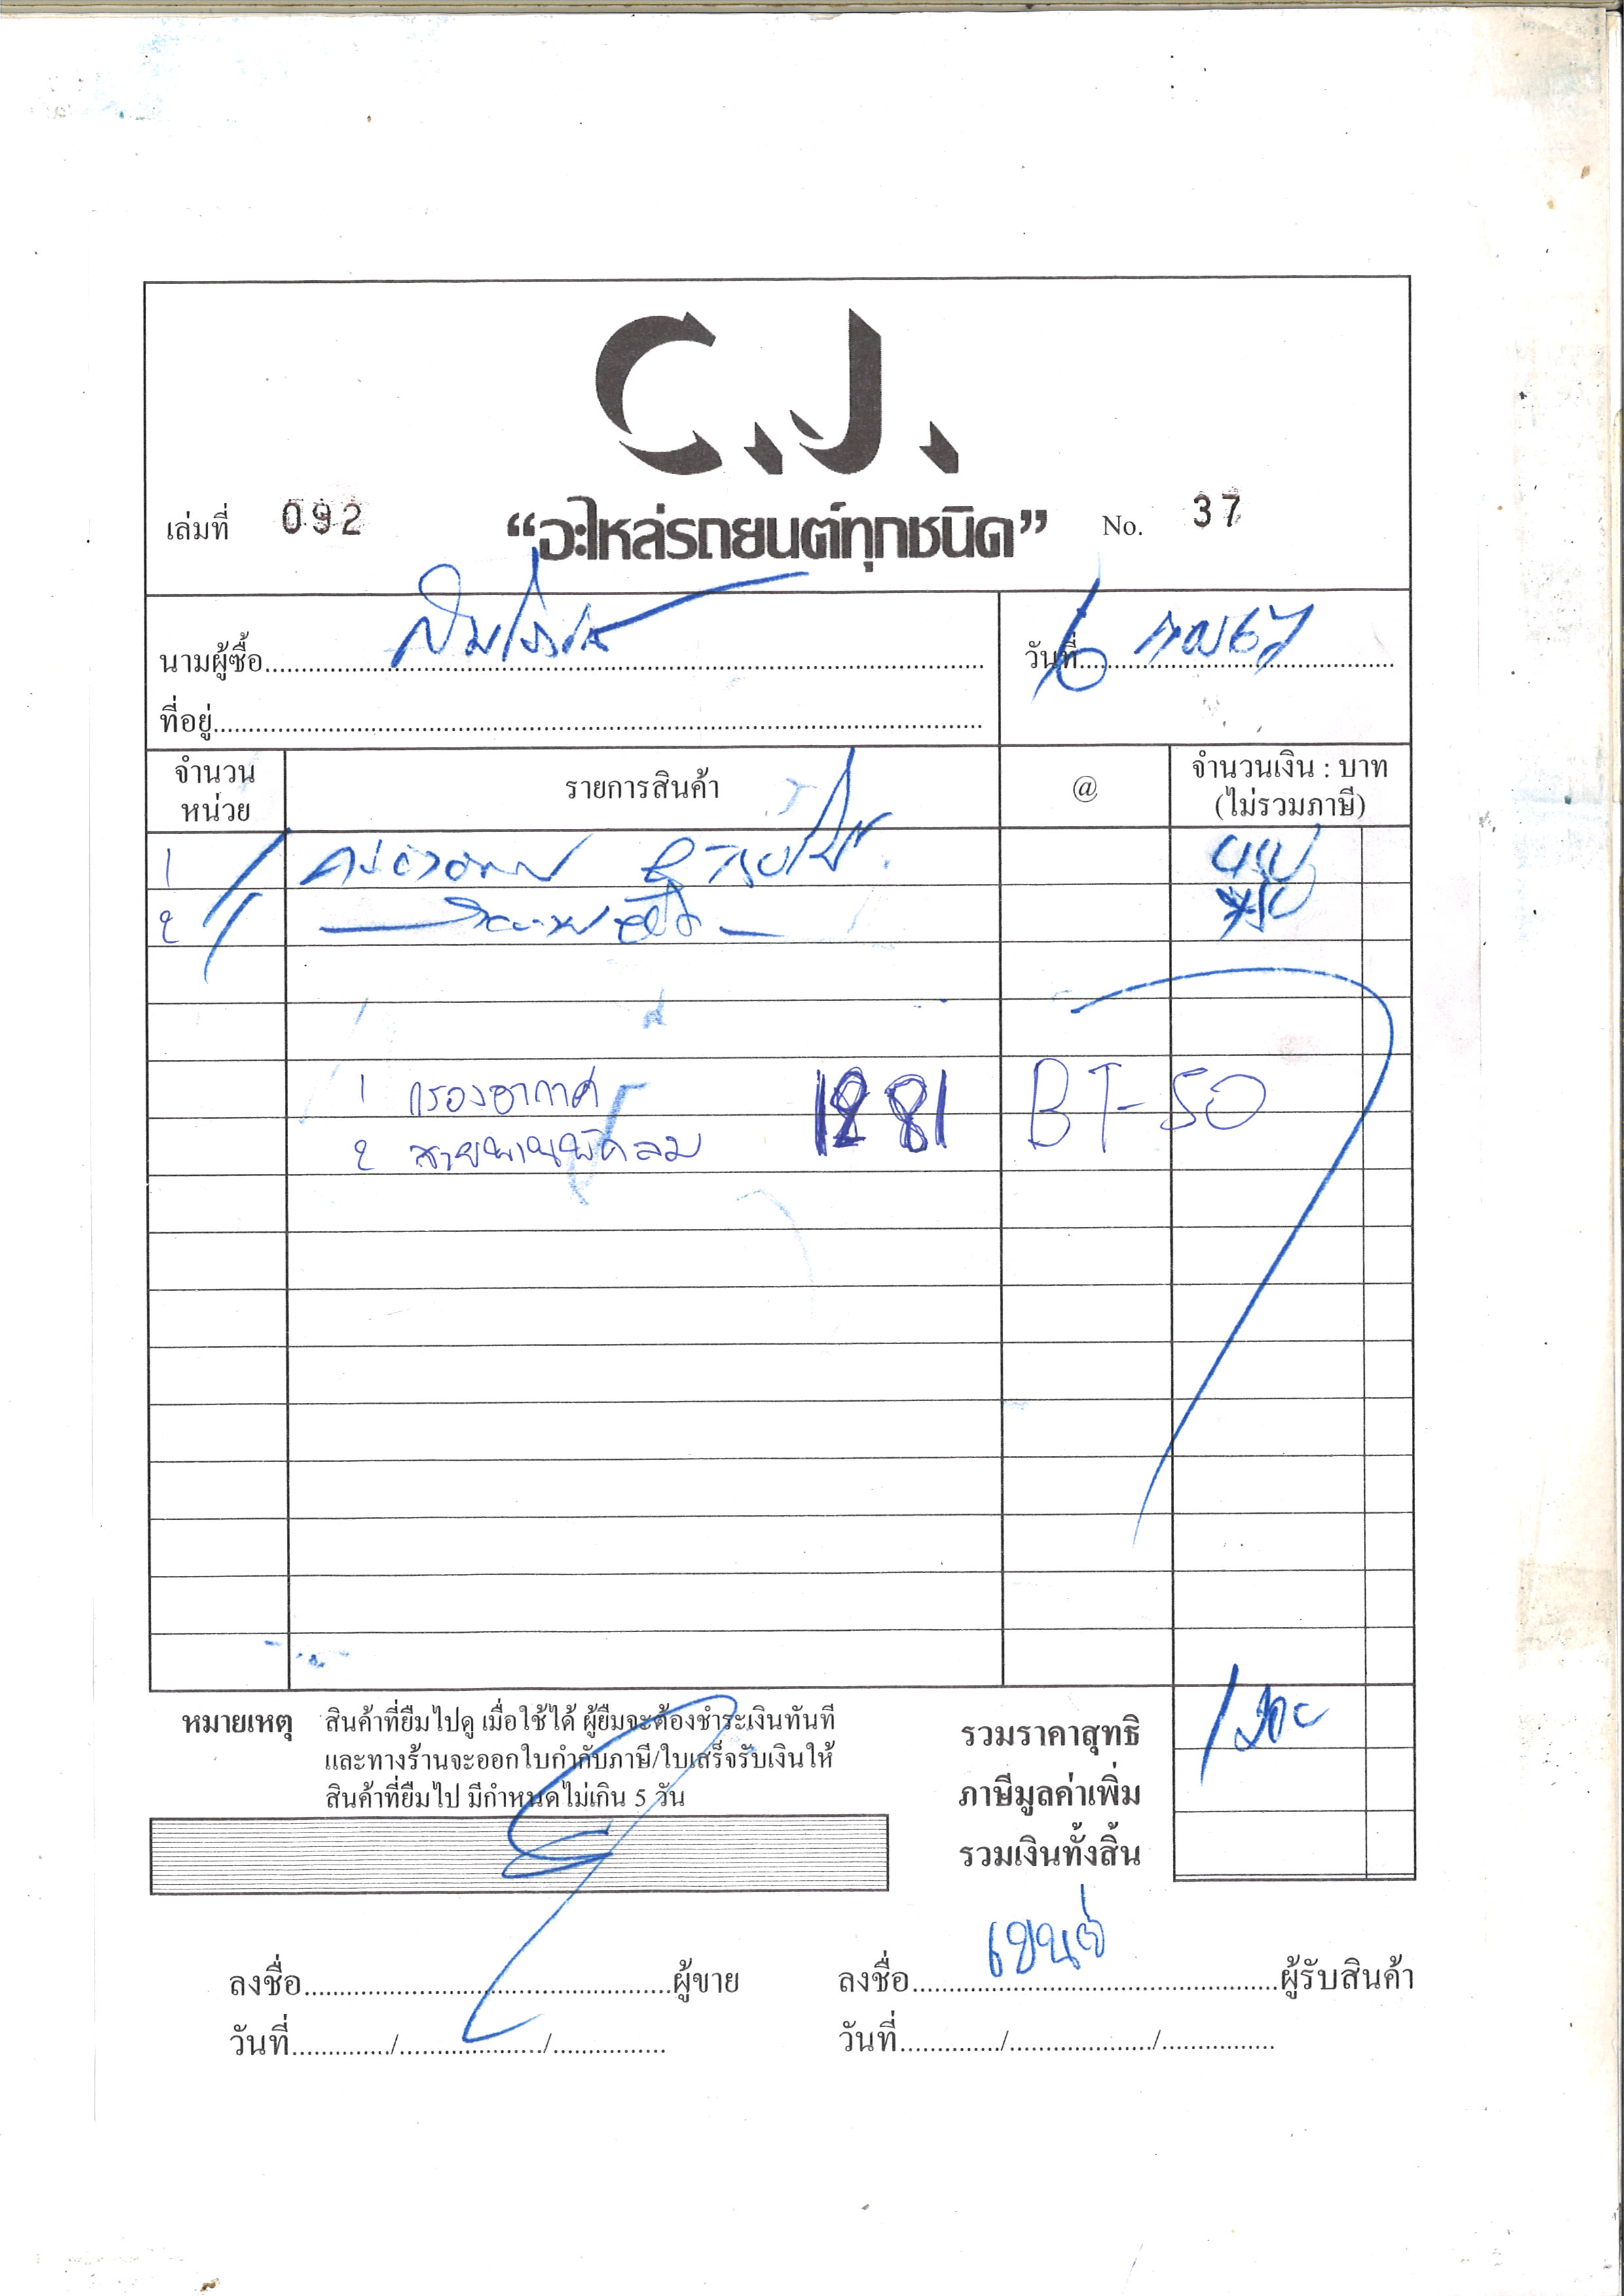 C.J.
เล่มที่ 092 “อะไหล่รถยนต์ทุกชนิด” No. 37
นามผู้ซื้อ วันที่ 6
ที่อยู่
จำนวน หน่วย รายการสินค้า @ จำนวนเงิน : บาท (ไม่รวมภาษี)
1
2
1 กรองอากาศ 1281 BT-50
2 สายพานพัดลม
หมายเหตุ สินค้าที่ยืมไปดู เมื่อใช้ได้ ผู้ยืมจะต้องชำระเงินทันที
และทางร้านจะออกใบกำกับภาษี/ใบเสร็จรับเงินให้
สินค้าที่ยืมไป มีกำหนดไม่เกิน 5 วัน
รวมราคาสุทธิ
ภาษีมูลค่าเพิ่ม
รวมเงินทั้งสิ้น
ลงชื่อ ผู้ขาย ลงชื่อ ผู้รับสินค้า
วันที่ / / วันที่ / /